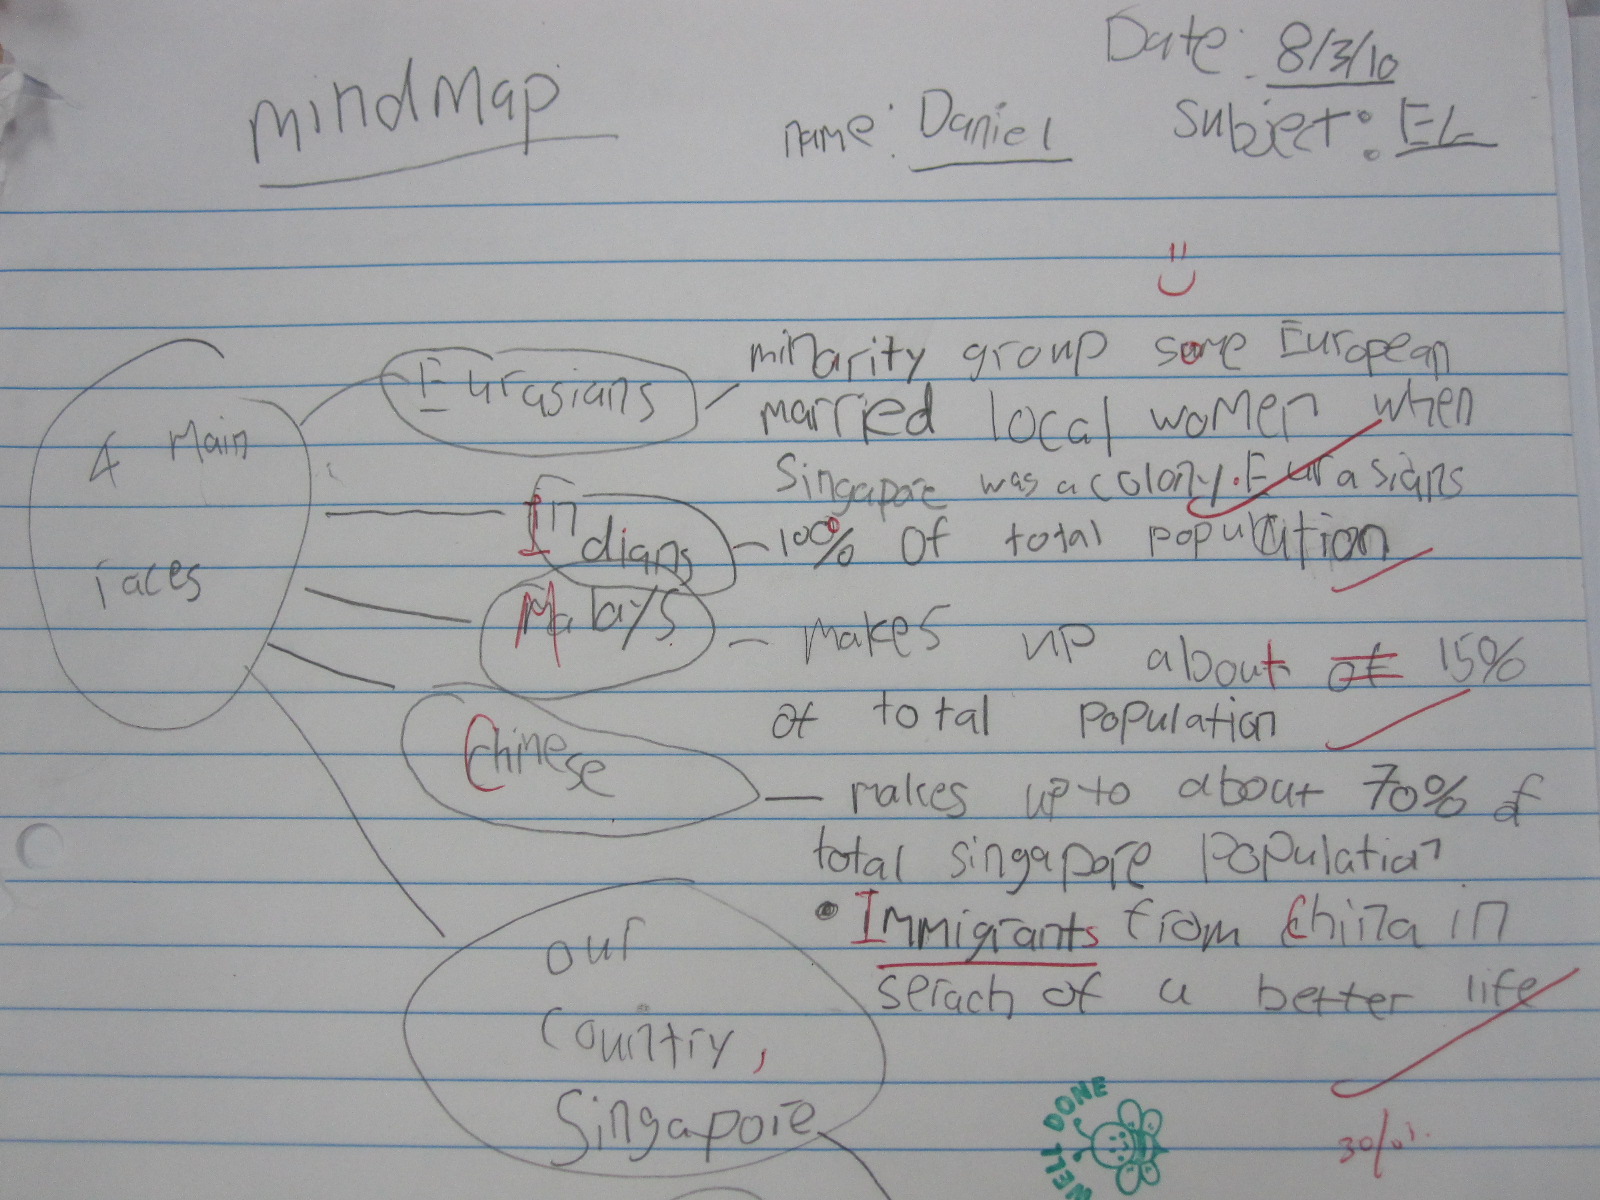 Date: 8/3/10
mindmap
name: Daniel
Subject: EL
4 Main
races
Eurasians
minarity group some European
married local women when
Singapore was a colony. Eurasians
Indians
100% of total population
Malays
makes up about of 15%
of total population
Chinese
makes up to about 70% of
total singapore population
• Immigrants from China in
serach of a better life
our
country,
Singapore
WELL DONE